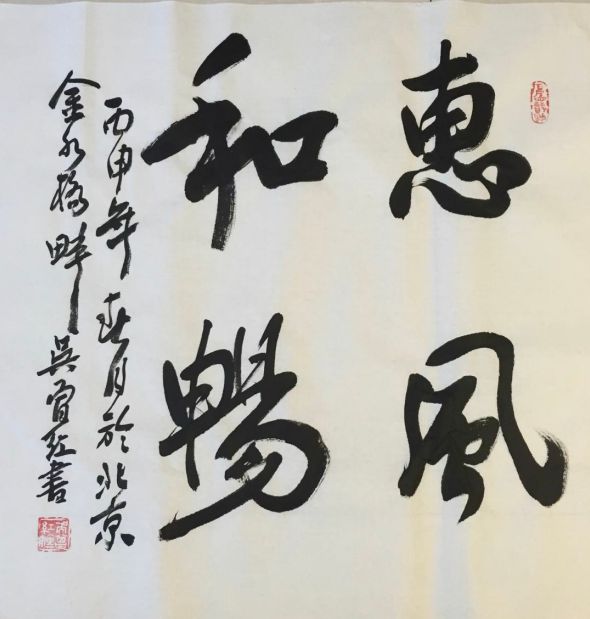 惠風
和暢
丙申年春月於北京
金水橋畔 吴
红書